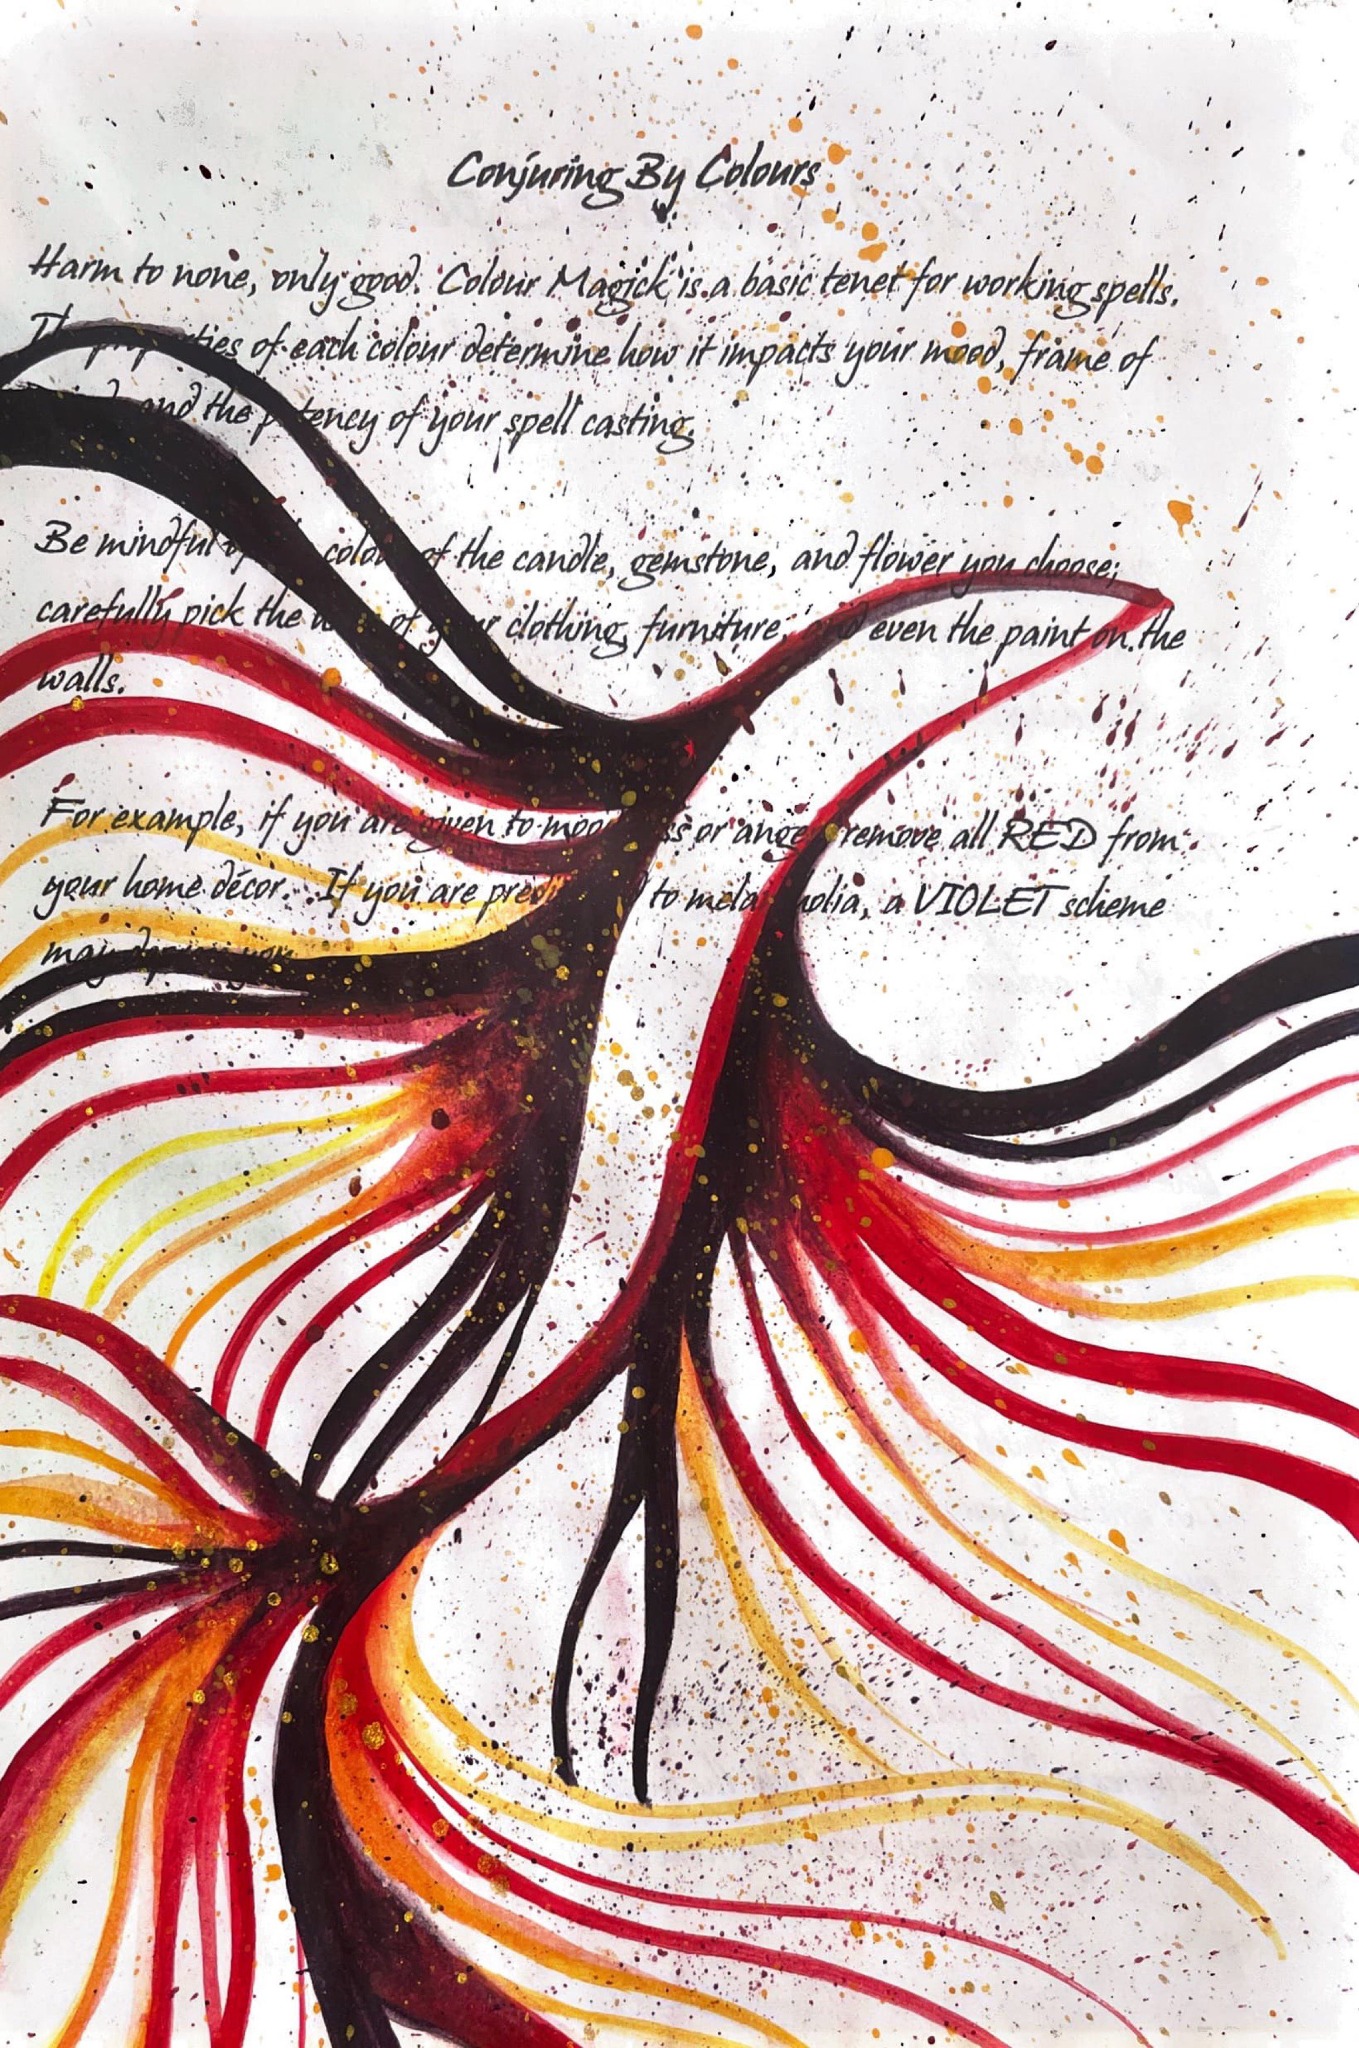 Conjuring By Colours
Harm to none, only good. Colour Magick is a basic tenet for working spells.
The properties of each colour determine how it impacts your mood, frame of
mind, and the potency of your spell casting.
Be mindful of the colour of the candle, gemstone, and flower you choose;
carefully pick the of your clothing, furniture, and even the paint on the
walls.
For example, if you are given to moodiness or anger, remove all RED from
your home décor. If you are predisposed to melancholia, a VIOLET scheme
may depress you.